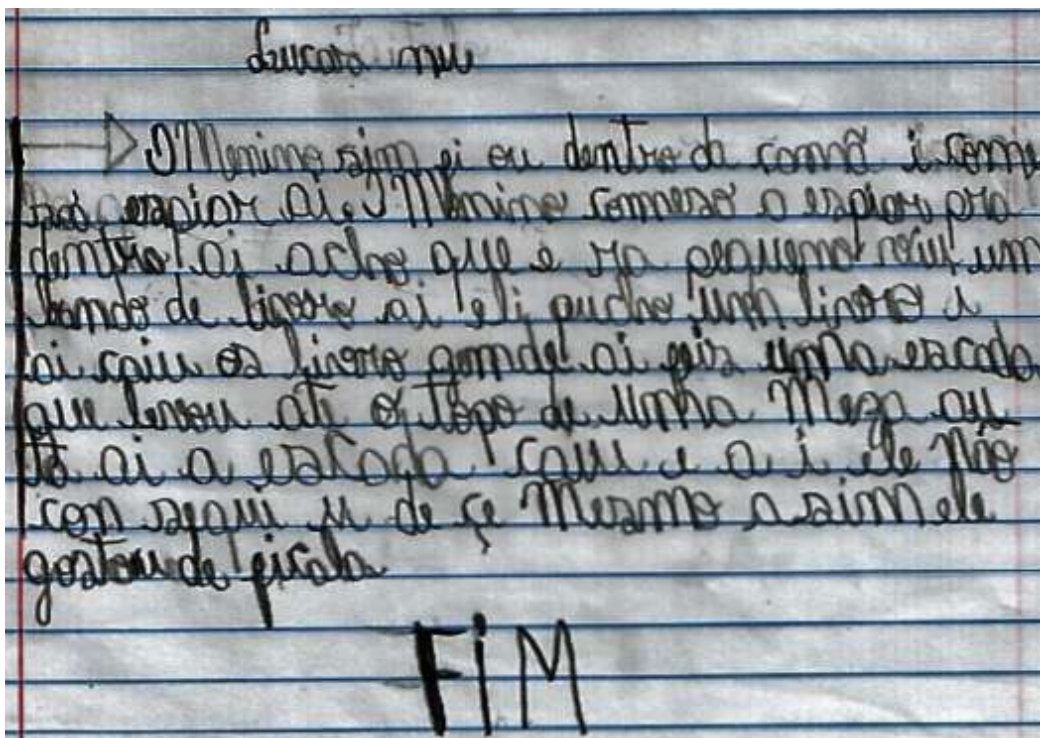 O Menino sim ei ou dentro da comā i come
espiar ai. O Menino comeso a espiar pra
dentro ai acho que e ra pequeno viu um
bando de livoro ai eli pucho um livoro i
ai caiu os livoro gornde ai feis umha escada
que levou ate o topo de umha Meza au
ta ai a escada caiu e a i ele não
con segui u de çe Mesmo a asim ele
gostou de fica la
FiM